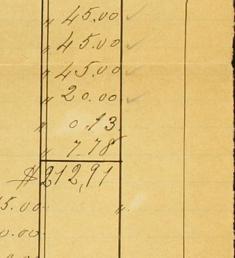 " 45.00 ✓
" 45.00 ✓
" 45.00 ✓
" 20.00 ✓
" 0.13
" 7.78
$212,91
5.00 "
0.00